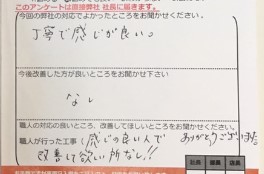 このアンケートは直接弊社 社長に届きます。
今回の弊社の対応でよかったところをお聞かせください。
丁寧で感じが良い。
今後改善した方が良いところをお聞かせ下さい
なし
職人の対応の良いところ、改善してほしいところをお聞かせください。
職人が行った工事(感じの良い人で ありがとうございます
改善して欲しい所なし!!
社長
店長